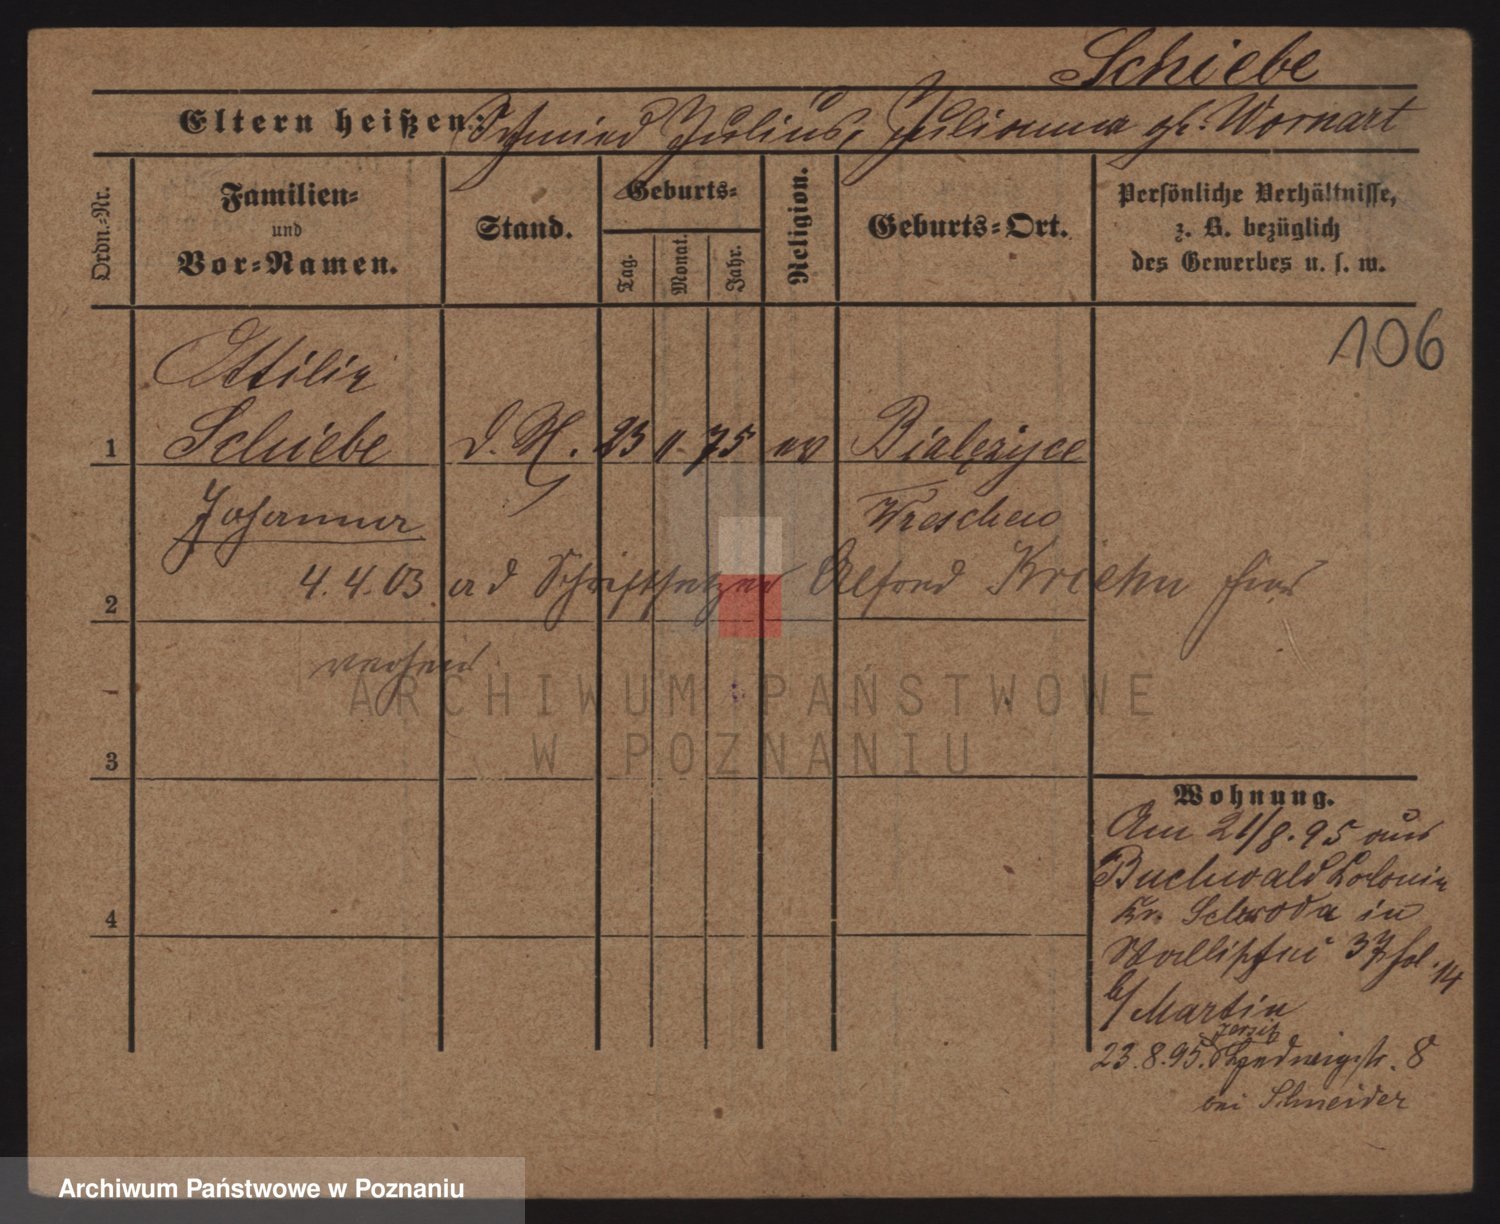 Schiebe
Eltern heißen: Schmied Julius, Julianna gb. Wornart
Ordn.-Nr.
Familien-
und
Vor-Namen.
Stand.
Geburts-
Tag.
Monat.
Jahr.
Religion.
Geburts-Ort.
Persönliche Verhältnisse,
z. B. bezüglich
des Gewerbes u. s. w.
106
Ottilie
1 Schiebe d. M. 23 11 75 ev
Johanna Wreschen
4.4.03 Schriftsetzer Alfred Kriehn hier
2
3
4
Wohnung.
Am 21/8.95 aus
Buchwald Colonie
Kr. Schroda in
Wallischei 37
b/ Martin
Jersitz
23.8.95. Hedwigstr. 8
bei Schneider
ARCHIWUM PAŃSTWOWE
W POZNANIU
Archiwum Państwowe w Poznaniu